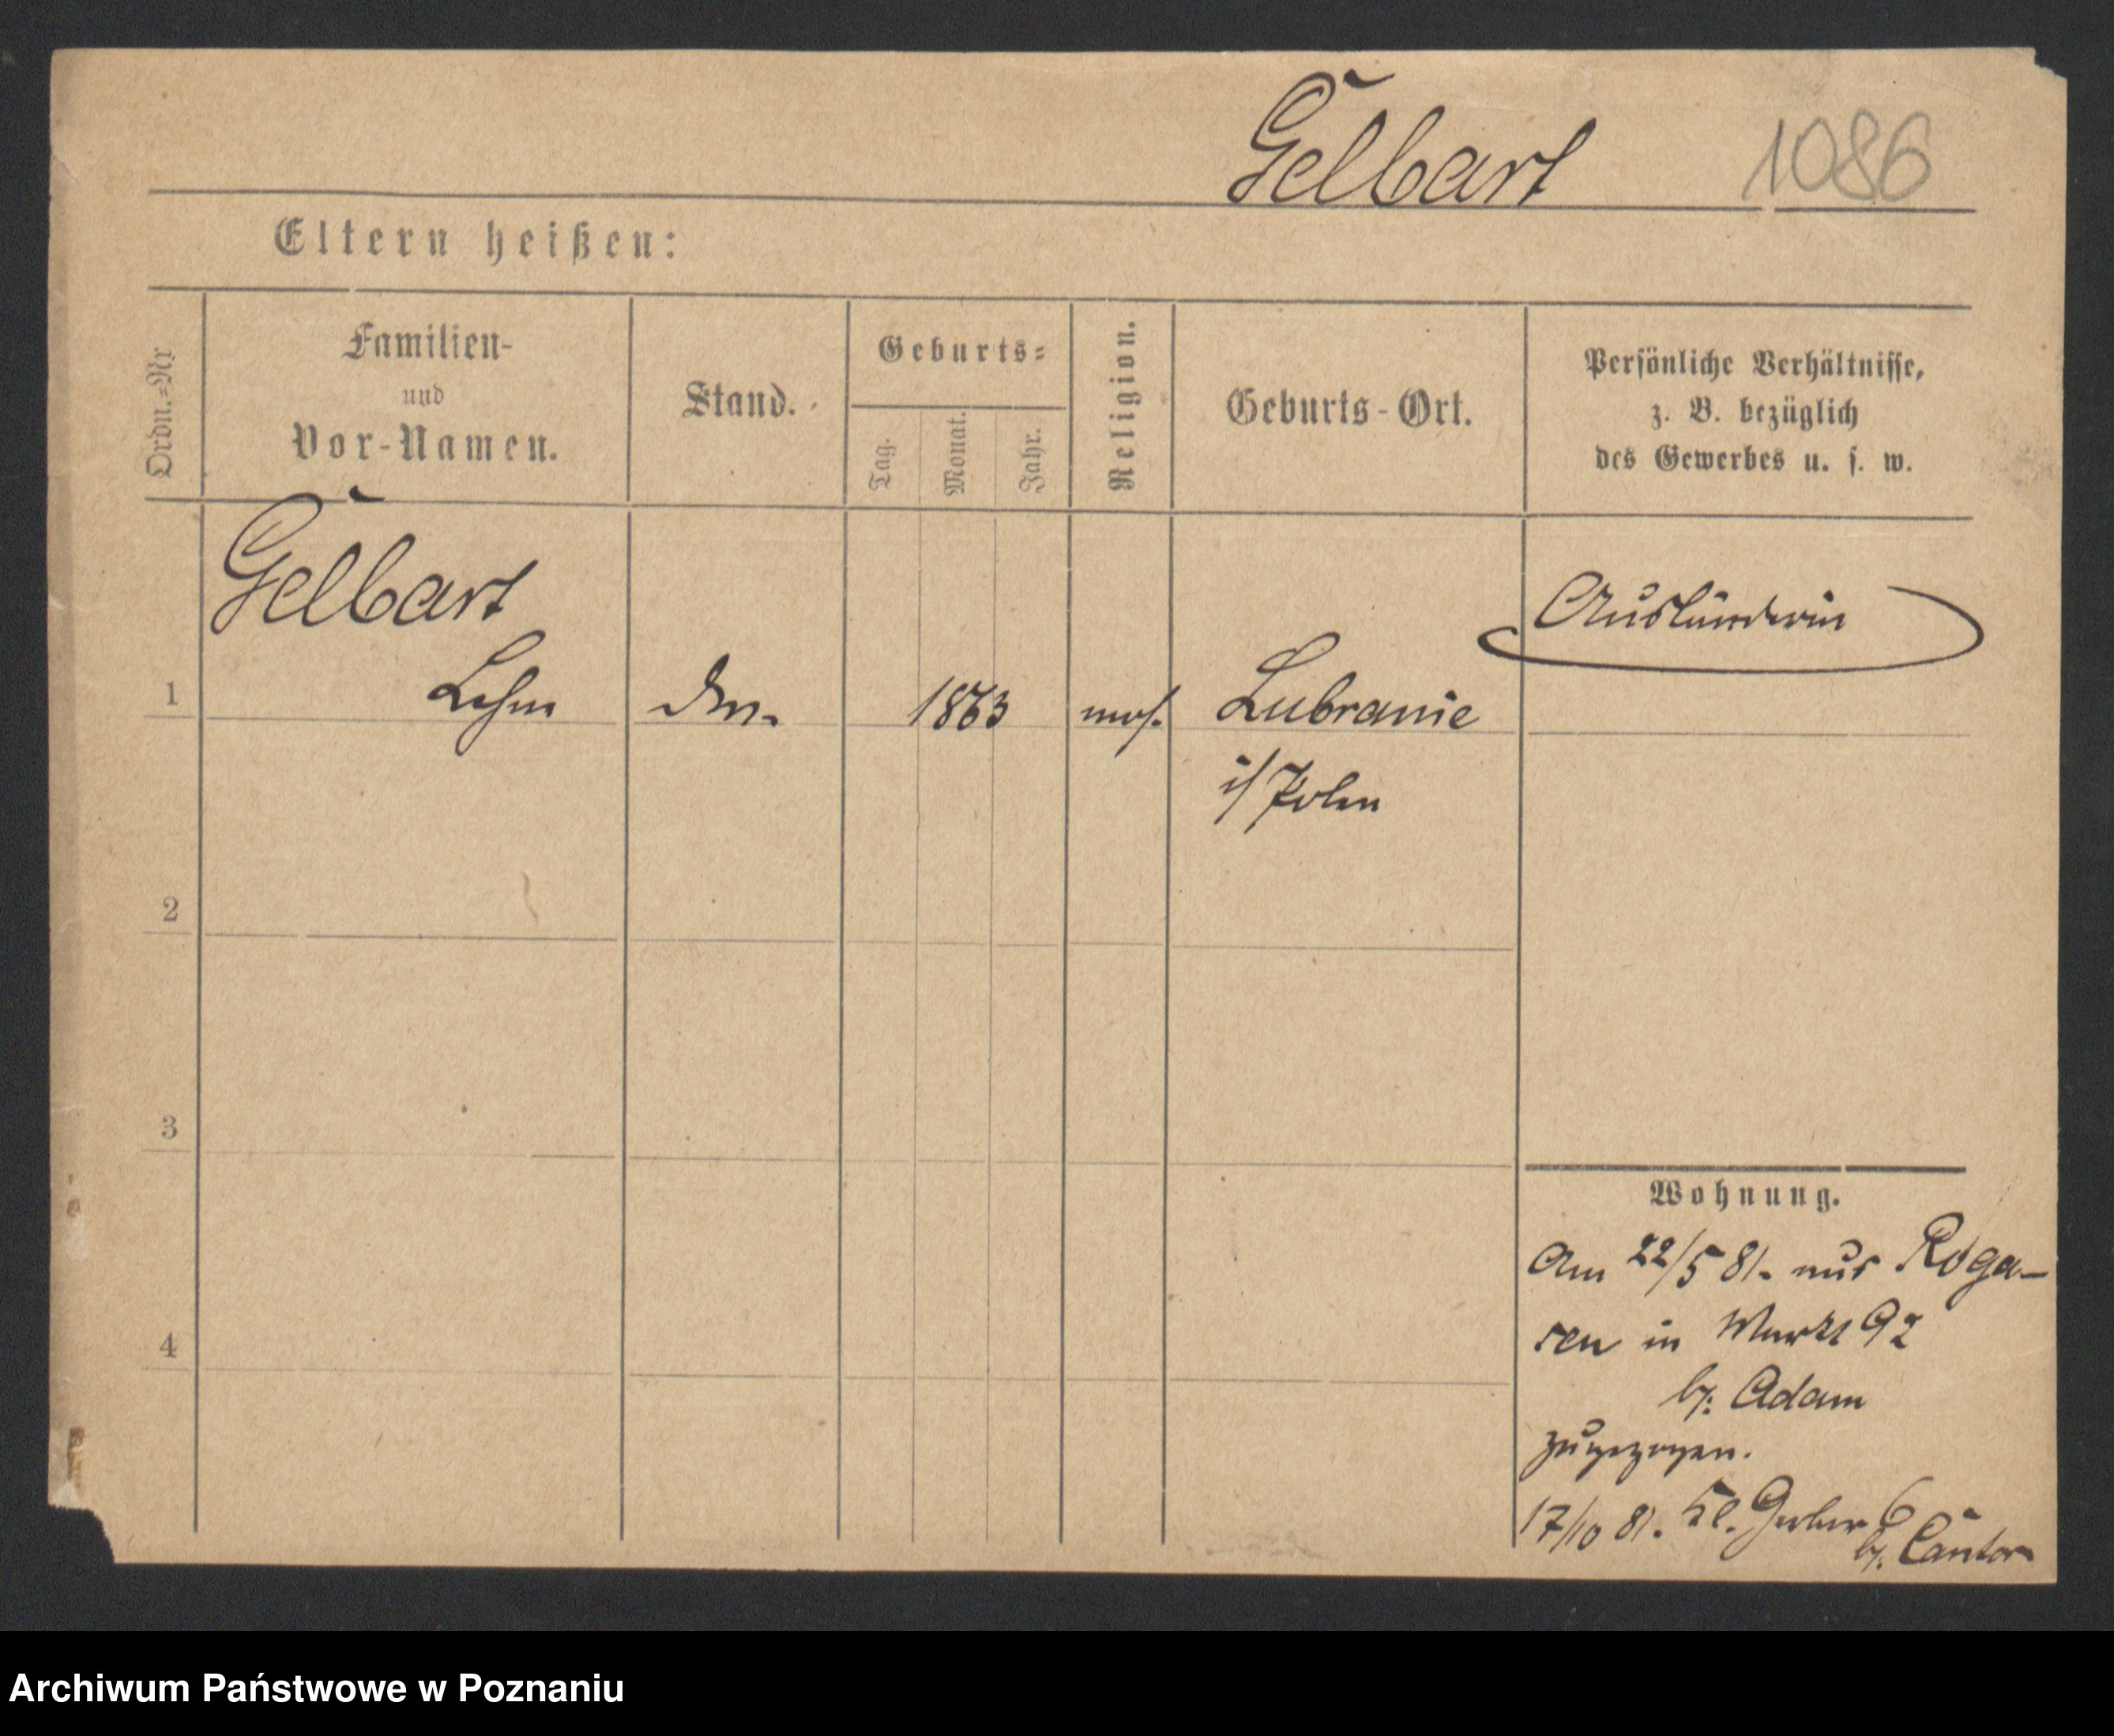 Gelbart 1086
Eltern heißen:
Ordn.-Nr
Familien-
und
Vor-Namen.
Stand.
Geburts-
Tag.
Monat.
Jahr.
Religion.
Geburts-Ort.
Persönliche Verhältnisse,
z. B. bezüglich
des Gewerbes u. s. w.
Gelbart
Ausländerin
1 1863 mos. Lubranie
i/Polen
2
3
Wohnung.
Am 22/5 81. aus Roga-
sen in Markt 92
4
b/: Adam
zugezogen.
17/10 81. Kl. Gerber 6
b/: Cantor
Archiwum Państwowe w Poznaniu